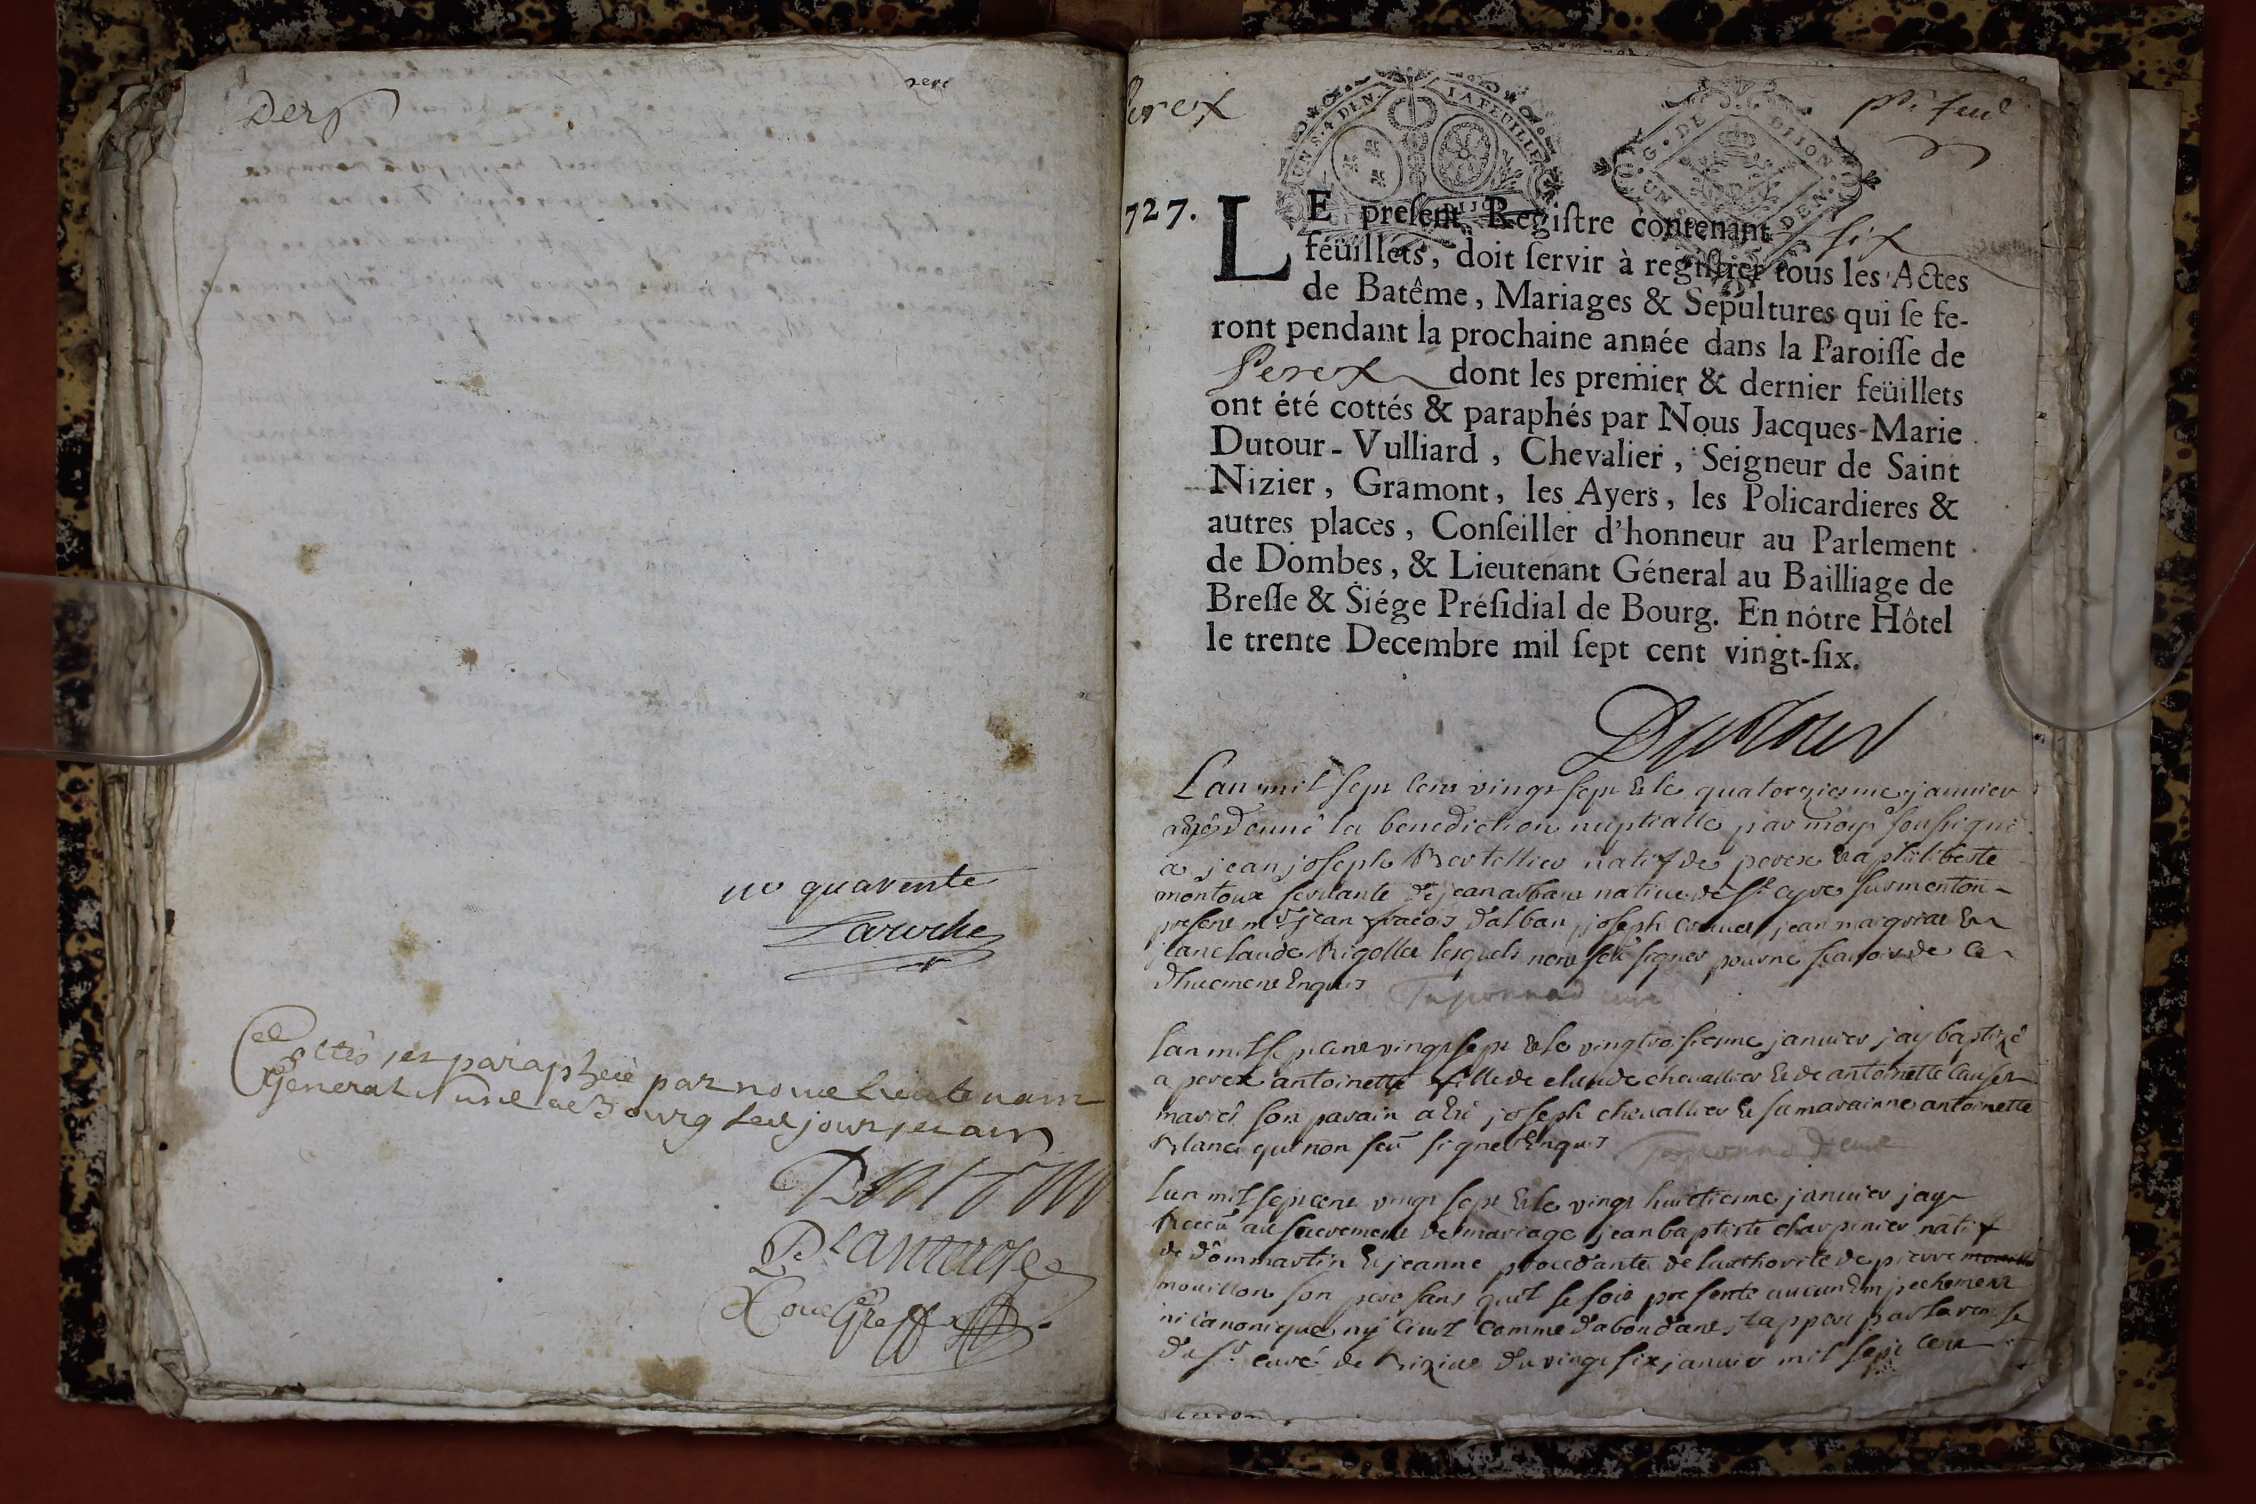 Der
uo quarente
Laroche
Cottés et paraphéé par nous Lieutenant
General de Bourg les jour et an
Perex
pr. feul
UN S. 4 DEN. LA FEUILLE
G. DE DIJON
727.
LE preſent Regiſtre contenant ſix
feüillets, doit ſervir à regiſtrer tous les Actes
de Batême, Mariages & Sepultures qui ſe fe-
ront pendant la prochaine année dans la Paroiſſe de
Perex dont les premier & dernier feüillets
ont été cottés & paraphés par Nous Jacques-Marie
Dutour-Vulliard, Chevalier, Seigneur de Saint
Nizier, Gramont, les Ayers, les Policardieres &
autres places, Conſeiller d'honneur au Parlement
de Dombes, & Lieutenant Géneral au Bailliage de
Breſſe & Siége Préſidial de Bourg. En nôtre Hôtel
le trente Decembre mil ſept cent vingt-ſix.
Dutour
Lan mil sept cent vingt sept & le quatorziesme janvier
donné la benediction nuptialle par moy soussigné
a jean joseph Bertellier natif de perex & a philiberte
montoux servante de jean natiue de st cyre sur menton
present mr jean francois dalban joseph jean &
jean claude Rigollet lesquels nont sceu signer pour ne scavoir de ce
dhuement Enquis
lan mil sept cent vingt sept & le vingtroisiesme janvier jay baptizé
a perex antoinette fille de claude chevallier & de antoinette
mariés son parain a été joseph chevallier & sa marainne antoinette
blanc qui non seu signer Enquis
lan mil sept cent vingt sept & le vingt huictiesme janvier jay
Receu au sacrement de mariage jean baptiste charpinier natif
de dommartin & jeanne procedante de lauthorité de pierre
mouillon son pere sans quil se soit presenté aucun Empechement
ni canonique ny Civil comme dabondant il appert par la remise
du sr curé de Biziat du vingt six janvier mil sept cent